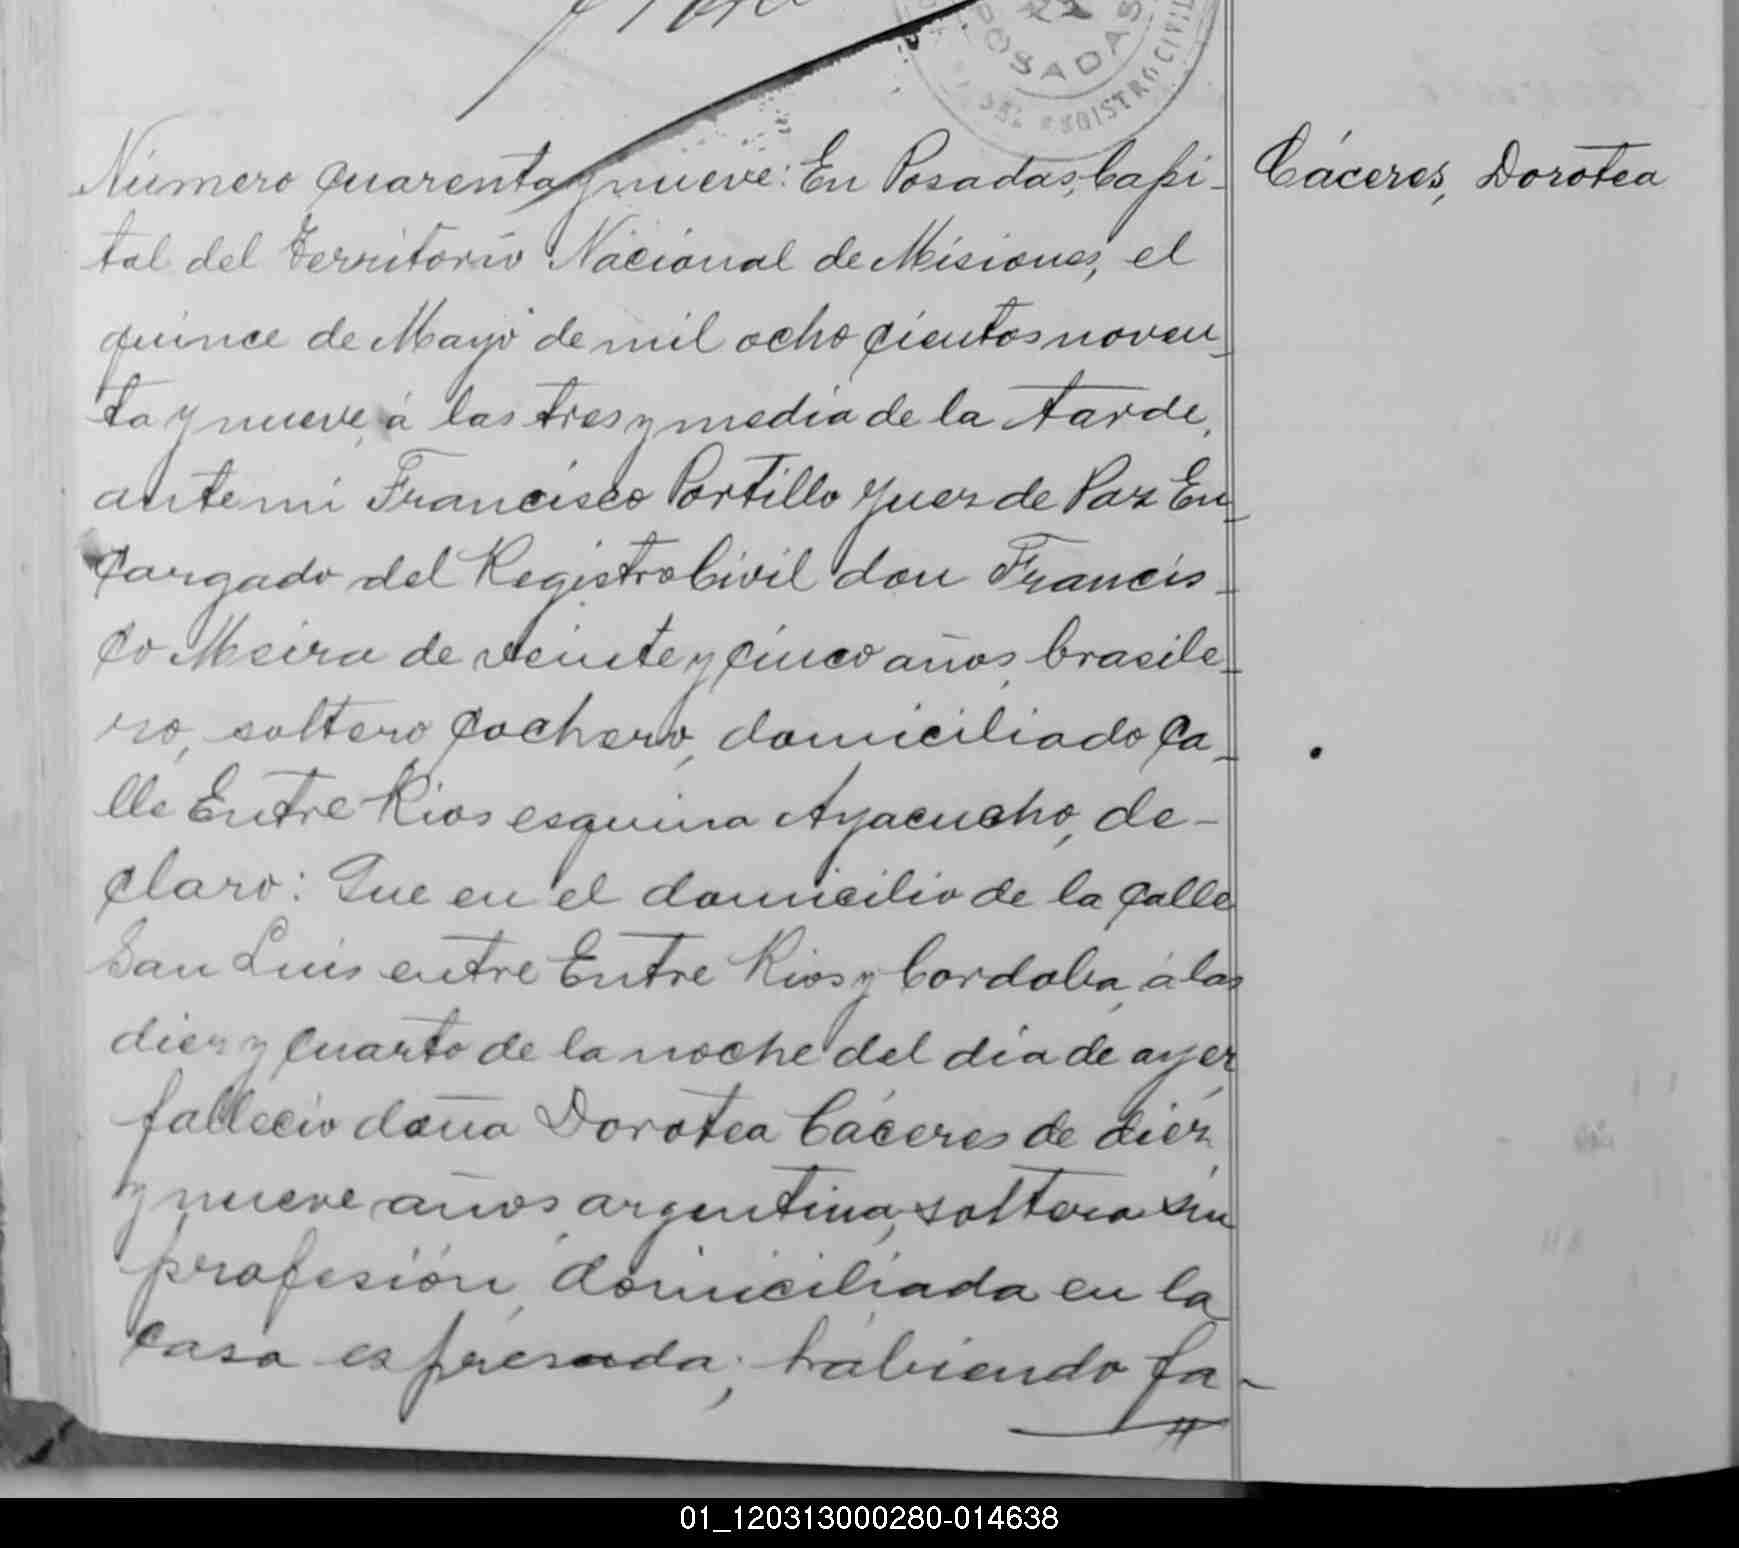 POSADAS
REGISTRO CIVIL
Número cuarenta y nueve: En Posadas, Capi-
tal del Territorio Nacional de Misiones, el
quince de Mayo de mil ochocientos noven-
ta y nueve, á las tres y media de la tarde,
ante mi Francisco Portillo Juez de Paz En-
cargado del Registro Civil don Francis-
co Meira de veinte y cinco años, brasile-
ro, soltero, cochero, domiciliado ca-
lle Entre Rios esquina Ayacucho, de-
claro: Que en el domicilio de la calle
San Luis entre Entre Rios y Cordoba, á las
diez y cuarto de la noche del dia de ayer
falleció doña Dorotea Cáceres de diez
y nueve años, argentina, soltera sin
profesión, domiciliada en la
casa espresada; habiendo fa-
Cáceres, Dorotea
01_120313000280-014638